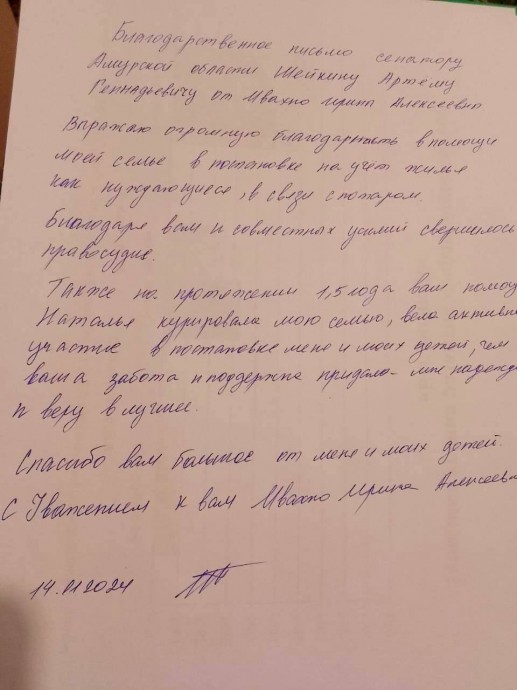 Благодарственное письмо сенатору
Амурской области Шейкину Артему
Геннадьевичу от Ивахно Ирины Алексеевны
Выражаю огромную благодарность в помощи
моей семье в постановке на учет жилья
как нуждающиеся, в связи с пожаром.
Благодаря вам и совместных усилий свершилось
правосудие.
Также на протяжении 1,5 года ваш помощ
Наталья курировала мою семью, вела активн
участие в постановке меня и моих детей, чем
ваша забота и поддержка придало - мне надежд
и веру в лучшее.
Спасибо вам большое от меня и моих детей.
С Уважением к вам Ивахно Ирина Алексеевн
14.01.2024